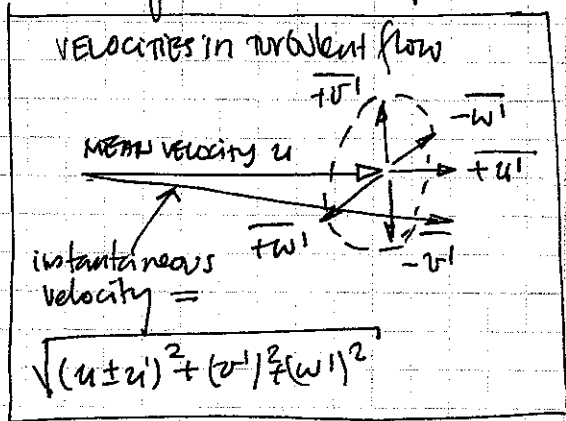 VELOCITIES in TURBULENT flow
+v'
-w'
MEAN VELOCITY u
+u'
+w'
-v'
instantaneous
velocity =
√(u±u')²+(v')²+(w')²